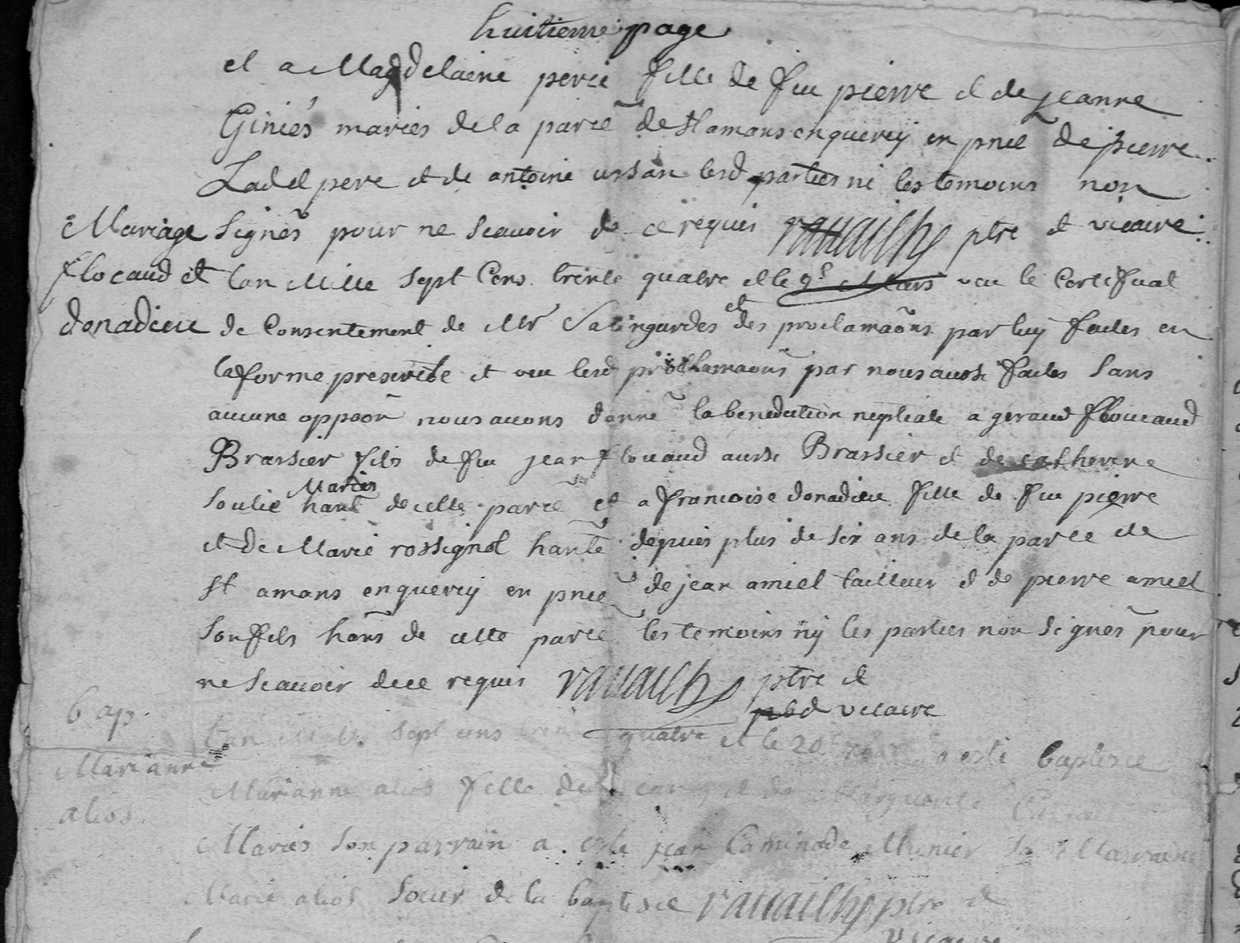 huitieme page
et a Magdelaine perie fille de feu pierre et de jeanne
Giniés mariés de la parce de St amans enquercy en pnce de pierre
Ladet pere et de antoine ursan lesd parties ni les temoins non
Mariage signés pour ne scavoir de ce requis ravailhe ptre et vicaire
flocaud et lan Mille sept Cens trente quatre et le 9e Mars veu le Certifficat
donadieu de Consentement de Mr Salingardes et des proclamaons par luy faites en
la forme prescritte et veu lesd proclamaons par nous aussi faites sans
aucune oppoon nous avons donné la benediction neptiale a geraud floucaud
Brassier fils de feu jean flouaud aussi Brassier et de catherine
Mariés
soulié hants de cette parce et a francoise donadieu fille de feu pierre
et de Marie rossignol hante depuis plus de six ans de la parce de
st amans enquercy en pnce de jean amiel tailleur et de pierre amiel
son fils hans de cette parce les temoins ny les parties non signés pour
ne scavoir de ce requis ravailhe ptre et
vicaire
bap.
lan Mille sept cens quatre et le 20 a esté baptisée
Marianne
Marianne alios fille de et de Marguerite
alios
Mariés son parrain a esté jean Caminade Munier sa Marraine
Marie alios soeur de la baptisée ravailhe ptre et
vicaire